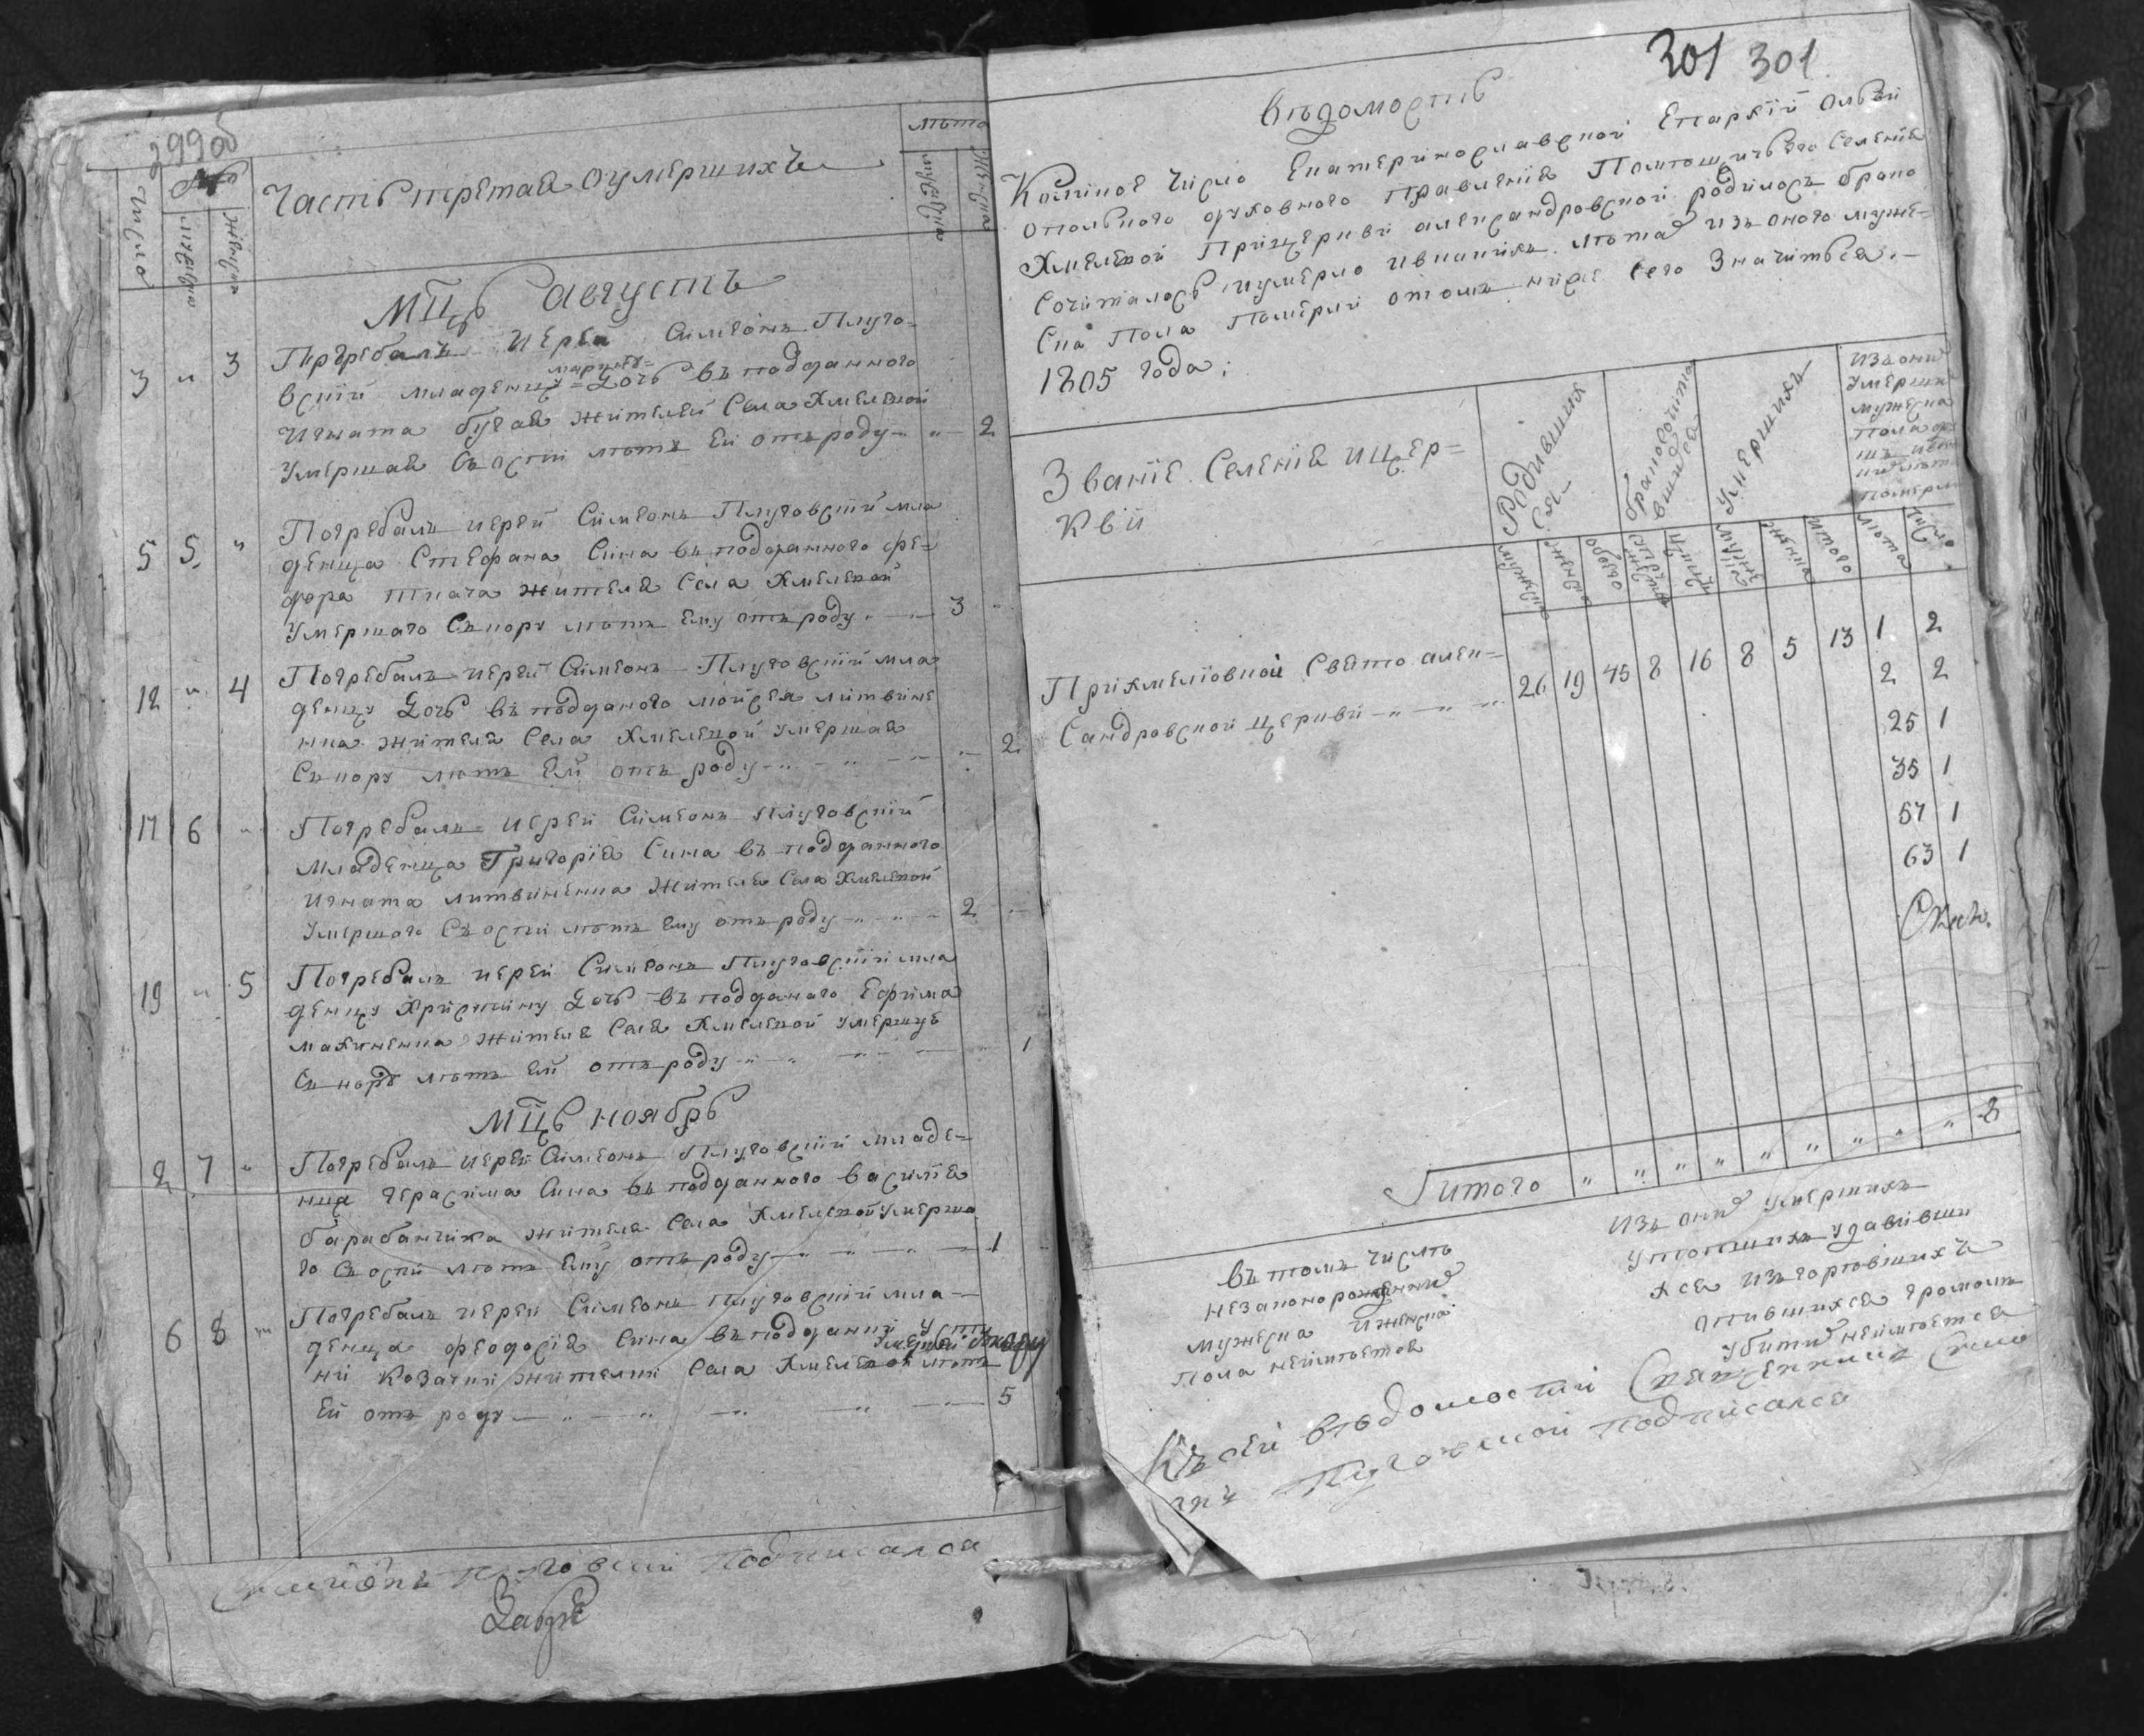 299об
Часть третая оумершихъ
лѣта
число
мужеска
женска
мужеска
женска
Мцъ августъ
3 " 3 Погребалъ иерей Симеонъ Плуго-
маринү=
вскій младенцу = Дочь въ подданного
Игната бугая жителей Села Хмелевой
Умершая съ оспи лѣтъ Ей отъ роду " 2
5 5 " Погребалъ иерей Симеонъ Плуговскій мла
денца Стефана Сина въ подданного фе-
дора ткача жителя Села Хмелевой
Умершаго Съ кору лѣтъ Ему отъ роду 3
12 " 4 Погребалъ иерей Симеонъ Плуговскій мла
денцу Дочь въ подданого мойсея литвине
нка жителя Села Хмелевой Умершая
Съ кору лѣтъ Ей отъ роду 2
17 6 " Погребалъ иерей Симеонъ Плуговскій
Младенца Григорія Сина въ подданного
Игната литвиненка Жителя Села Хмелевой
Умершого Съ оспи лѣтъ Ему отъ роду 2
19 " 5 Погребалъ иерей Симеонъ Плуговскій мла
денцу Христину Дочь въ подданого Ефима
махиненка жителя Села Хмелевой Умершую
Съ кору лѣтъ Ей отъ роду 1
Мцъ ноябрь
2 7 " Погребалъ иерей Симеонъ Плуговскій младе-
нца герасима Сина въ подданного василія
барабанчика жителя Села Хмелевой Умерша
го Съ оспи лѣтъ Ему отъ роду 1
6 8 " Погребалъ иерей Симеонъ Плуговскій мла-
денца феодосія Сина въ подданий Усти
ни Козачки жителки Села Хмелевой лѣтъ
Ей отъ роду 5
Симионъ Плуговскій подписался
301 301
Вѣдомость
Коликое число Екатеринославской Епархій Олвій
опольского духовного Правленія Помѣщичьяго Селенія
Хмелевой При церкви александровской родилось брако
Сочиталось и умерло и в какихъ лѣтах изъ оного муже-
ска Пола Померли отомъ ниже Сего Значиться.
1805 года:
Званіе Селенія и цер=
кви
Родивших
ся
бракосочита
вшихся
Умершихъ
изъ оних
Умерших
мужеска
пола
померли
итого
лѣта
число
При Хмеліовкой Свято алек=
Сандровской церкви 26 19 45 8 16 8 5 13 1 2
2 2
25 1
35 1
57 1
63 1
Итого " " " " " " " " " 8
въ томъ числѣ
незаконорожденних
мужеска и женска
пола неимѣется
изъ оних умершихъ
утопшихъ удавивши
хся изъ горѣвшихъ
опившихся громомъ
убитих неимѣется
Къ сей вѣдомости Священникъ Сими
онъ Плуговскій подписался